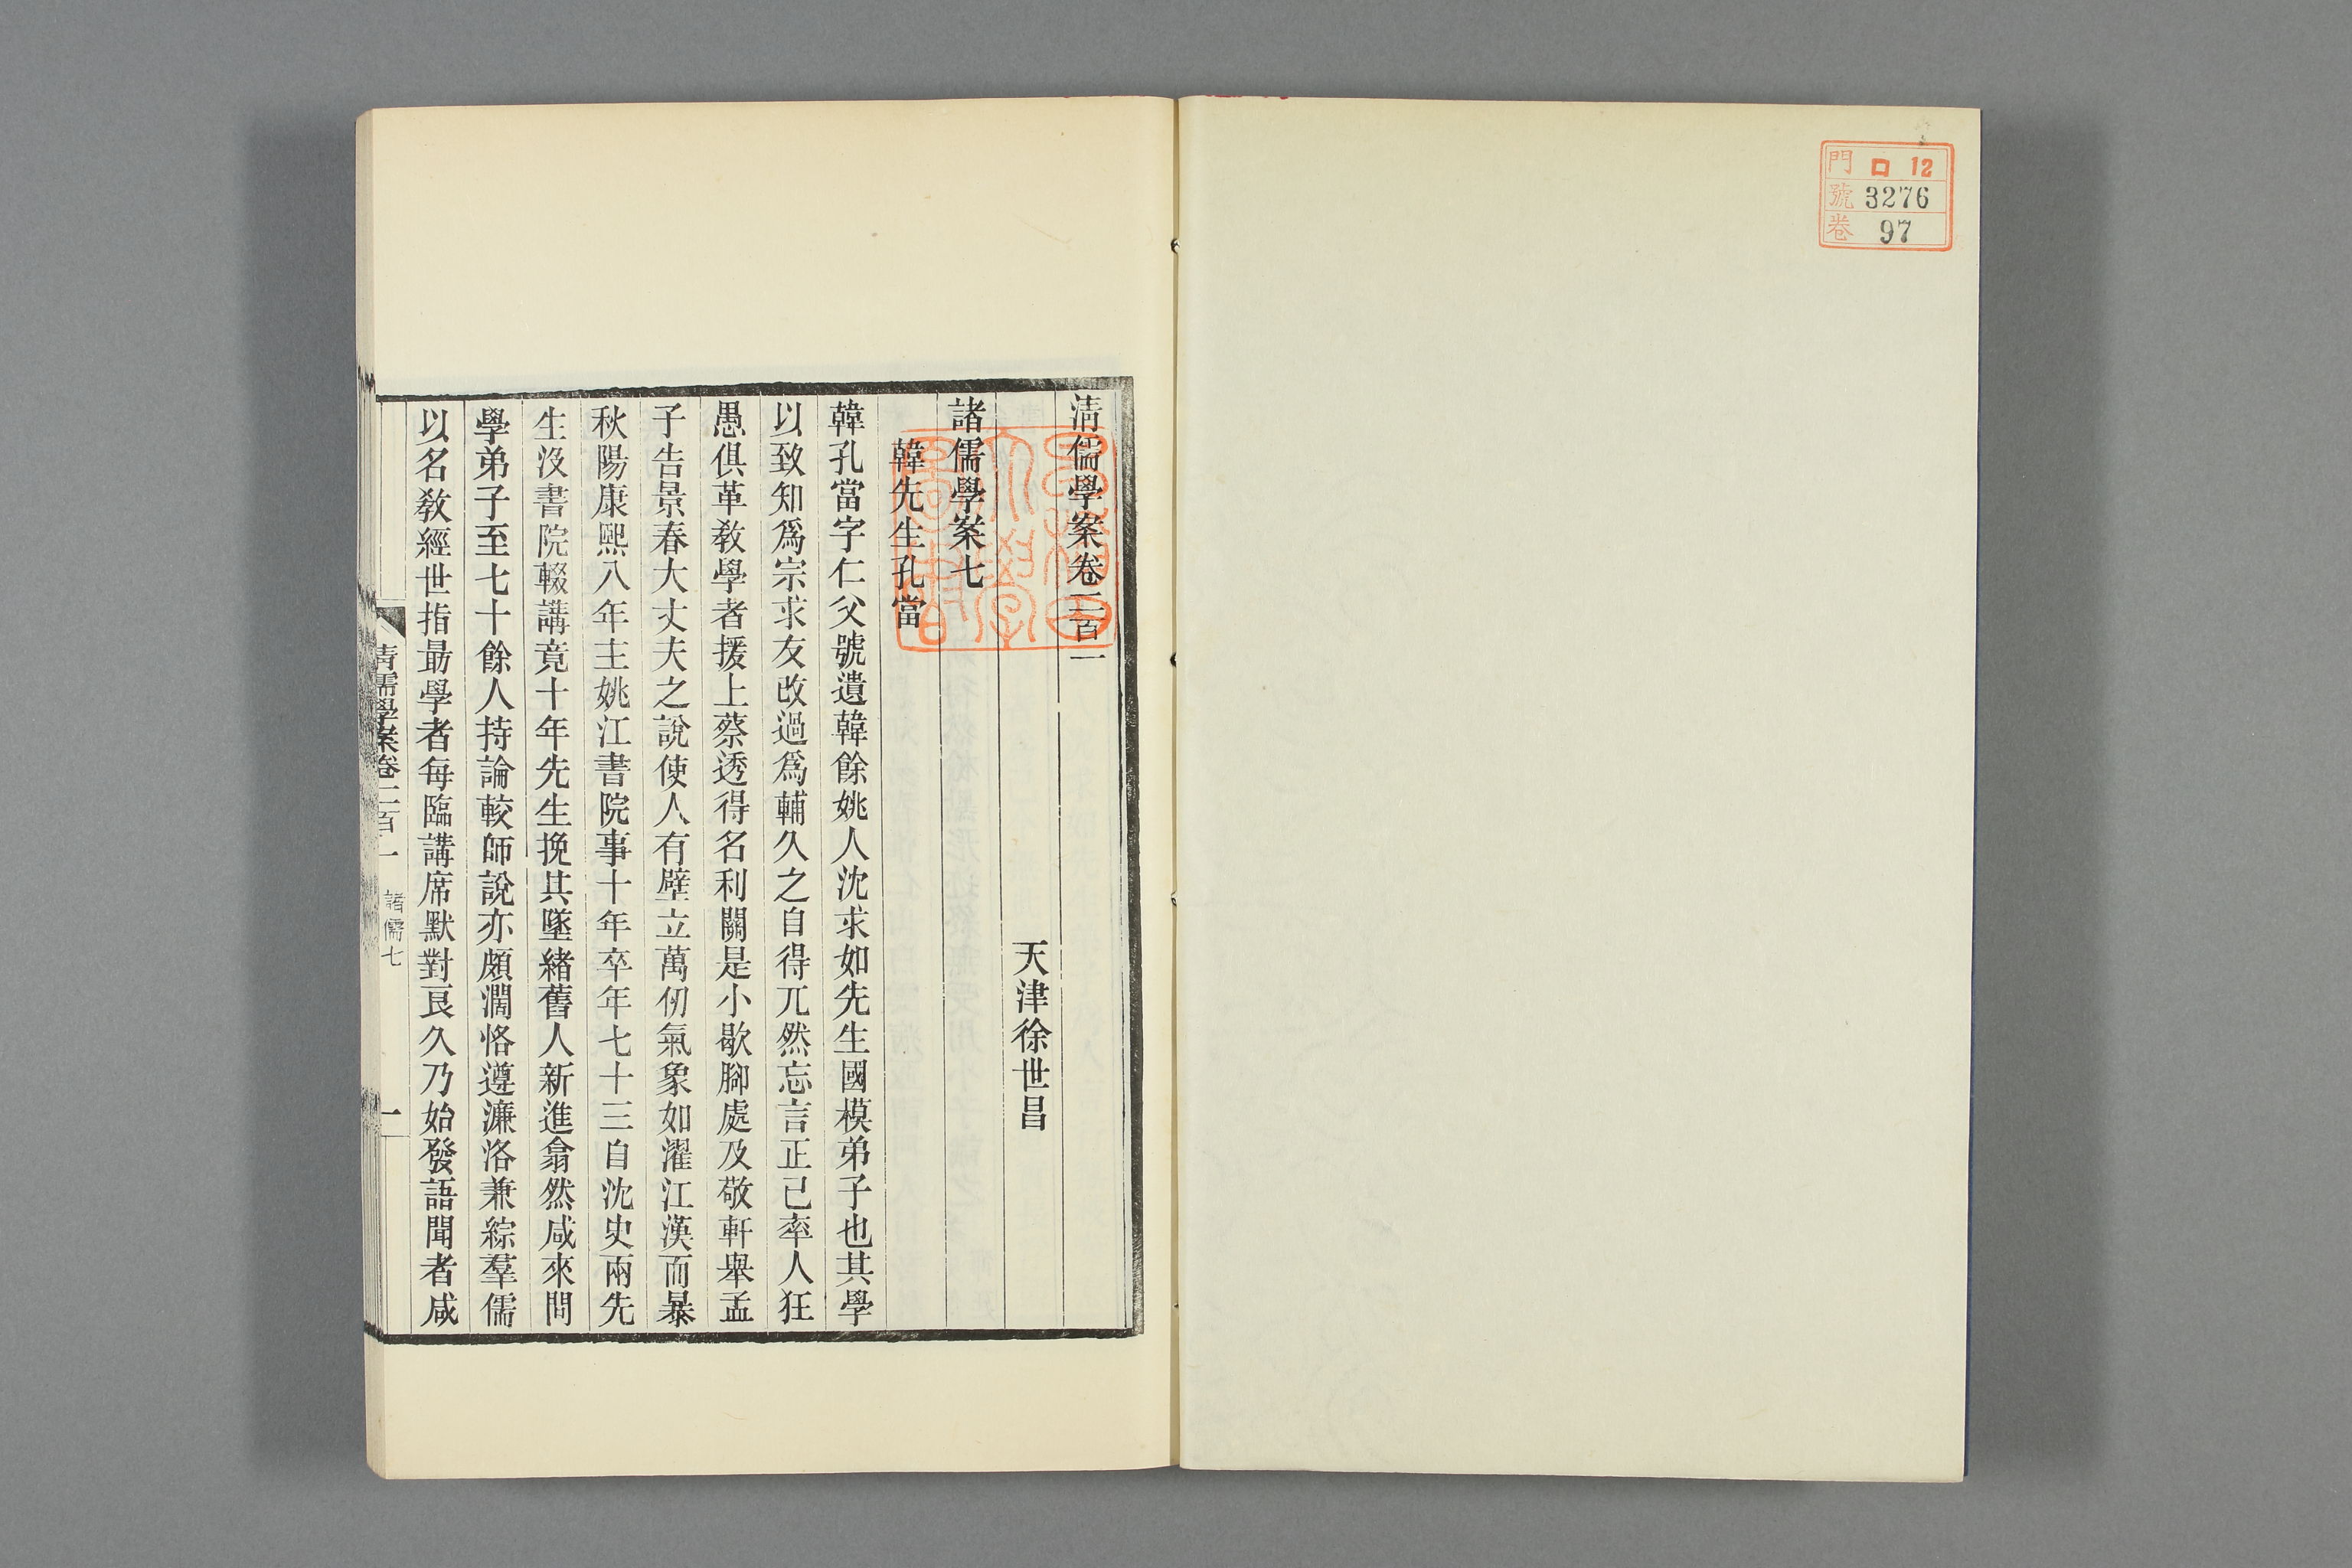 門 ロ 12
號 3276
卷 97
清儒學案卷二百一
天津徐世昌
諸儒學案七
韓先生孔當
韓孔當字仁父號遺韓餘姚人沈求如先生國模弟子也其學
以致知爲宗求友改過爲輔久之自得兀然忘言正己率人狂
愚俱革敎學者援上蔡透得名利關是小歇腳處及敬軒舉孟
子告景春大丈夫之說使人有壁立萬仞氣象如濯江漢而暴
秋陽康熙八年主姚江書院事十年卒年七十三自沈史兩先
生沒書院輟講竟十年先生挽其墜緒舊人新進翕然咸來問
學弟子至七十餘人持論較師說亦頗濶恪遵濂洛兼綜羣儒
以名敎經世指最學者每臨講席默對良久乃始發語聞者咸
清儒學案卷二百一 諸儒七 一